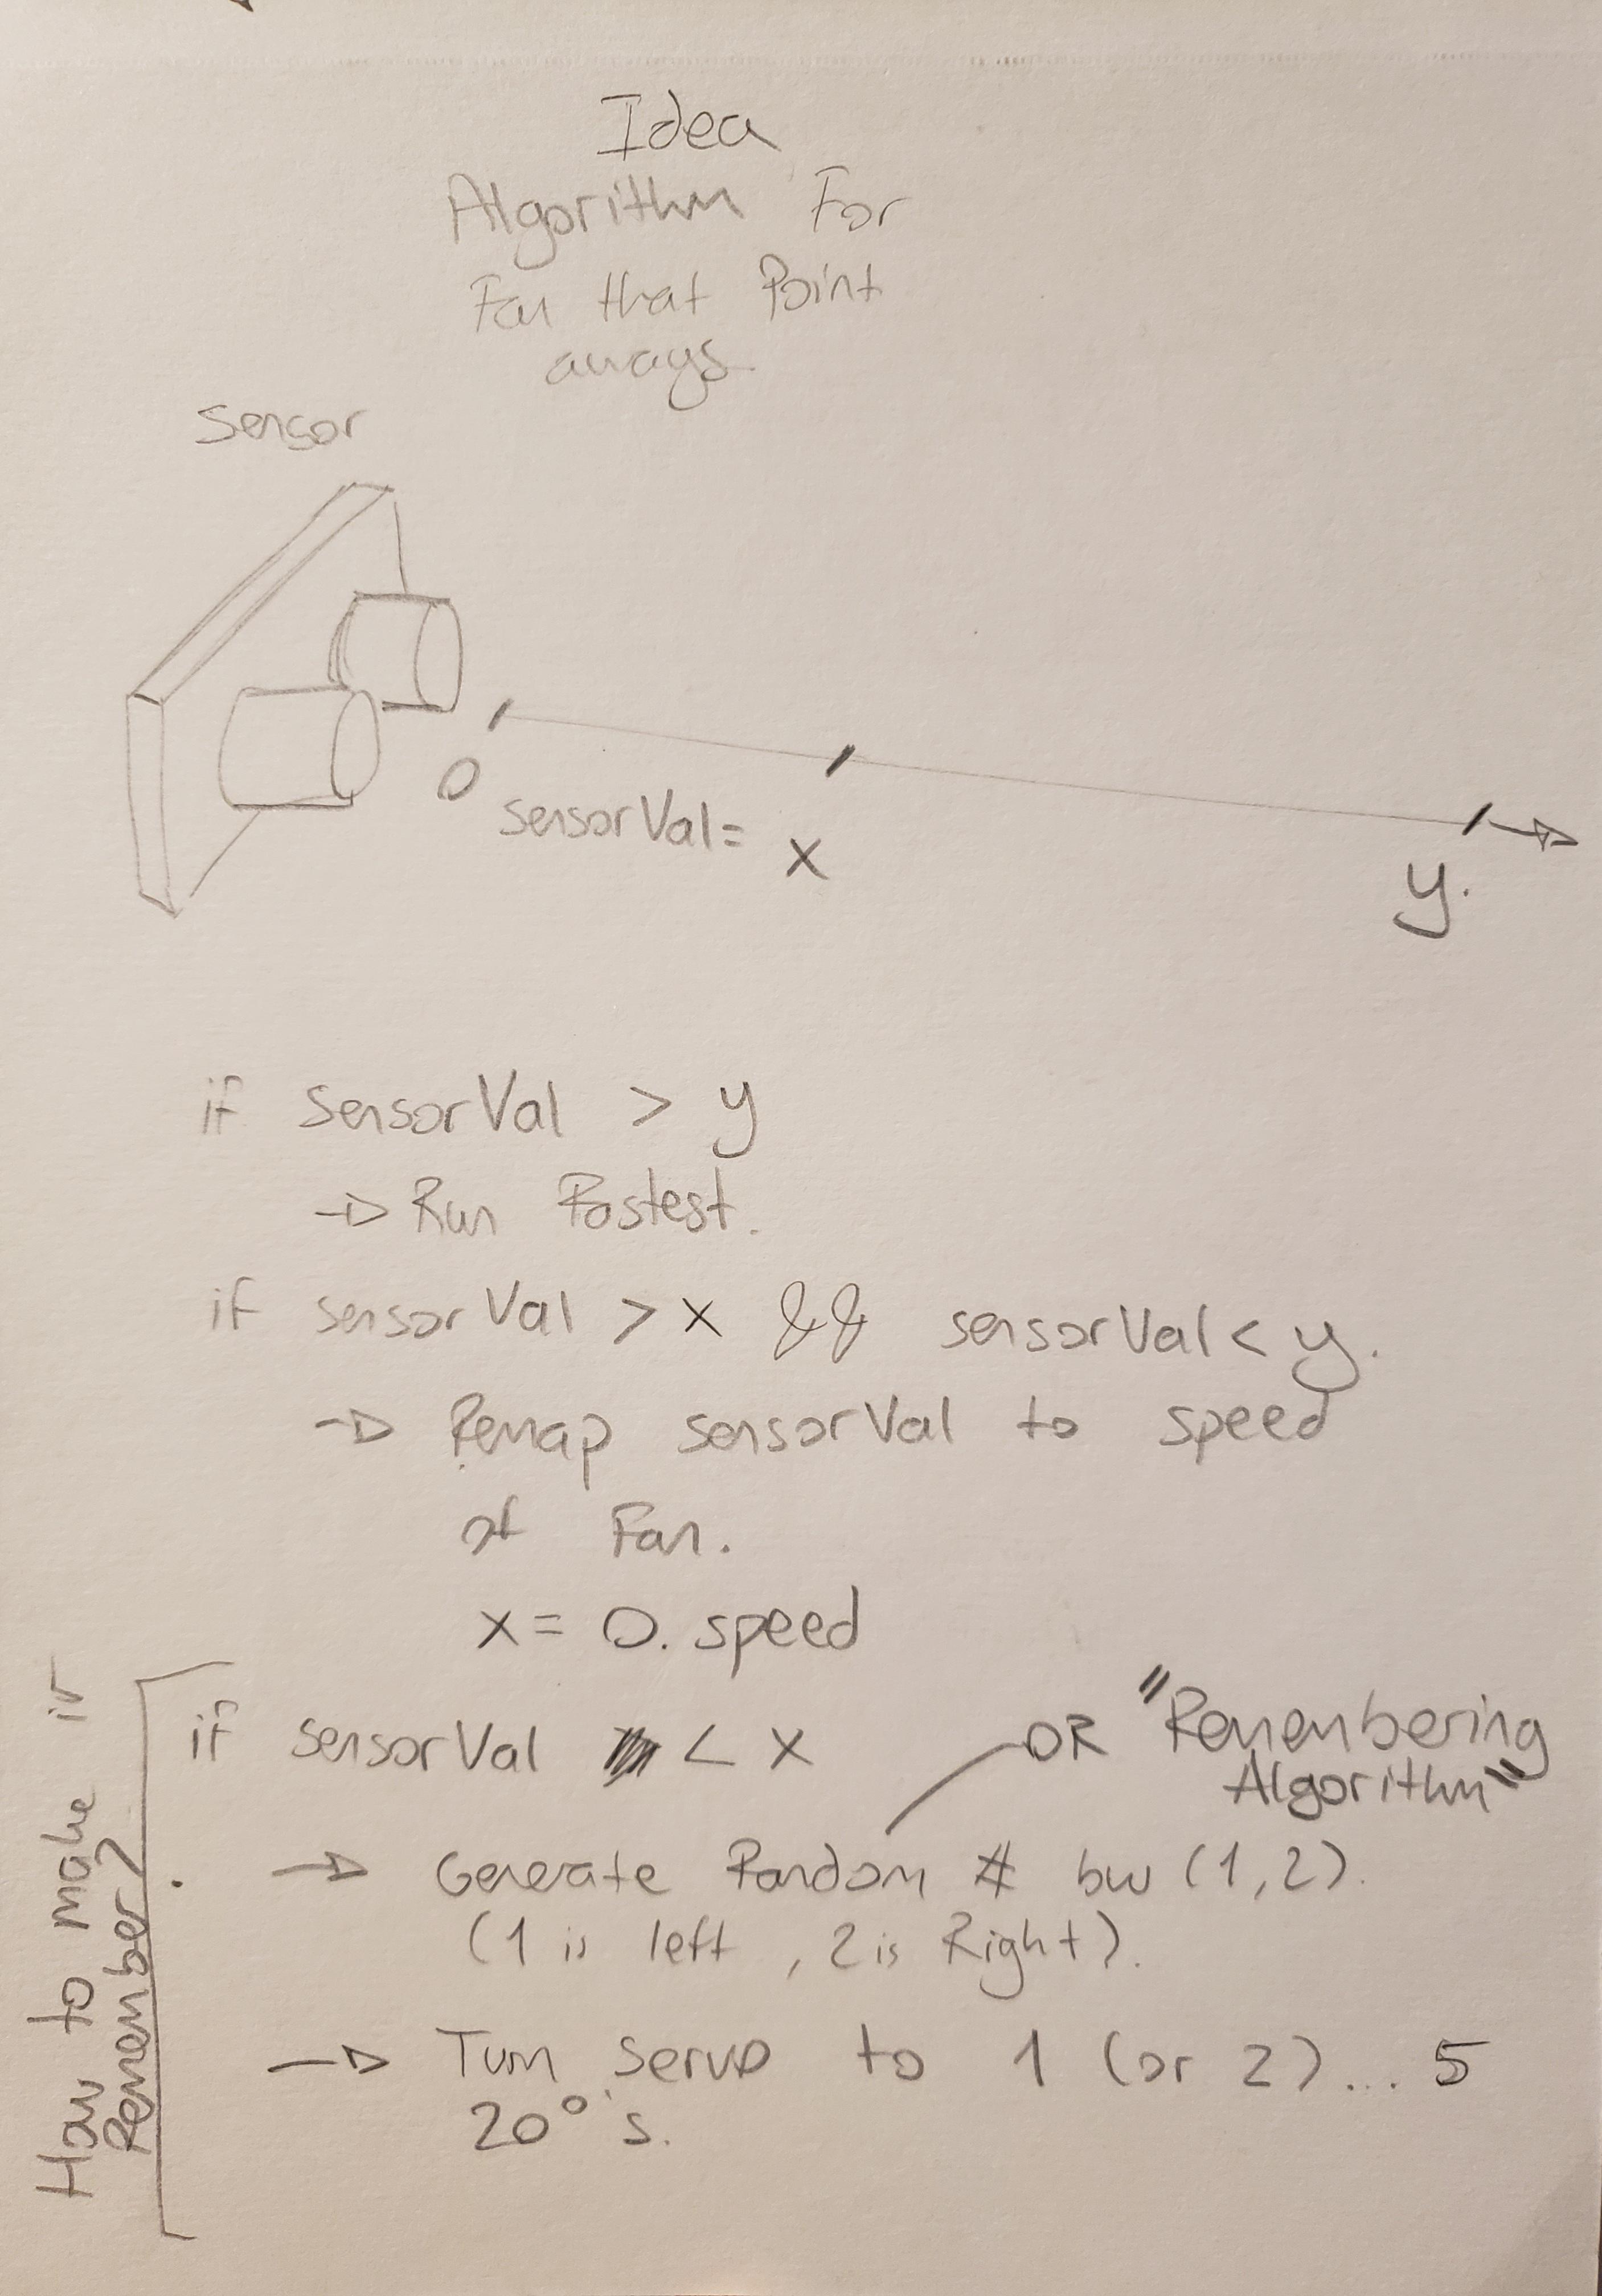 Idea
Algorithm For
Fan that Point
aways
Sensor
0
sensorVal =
x
y.
if sensorVal > y
→ Run Fastest.
if sensorVal > x && sensorVal < y.
→ Remap sensorVal to speed
of Fan.
x = 0. speed
if sensorVal < x
OR "Remembering
Algorithm"
→ Generate Random # bw (1,2).
(1 is left, 2 is Right).
→ Turn servo to 1 (or 2)... 5
20°'s.
How to make it
Remember?